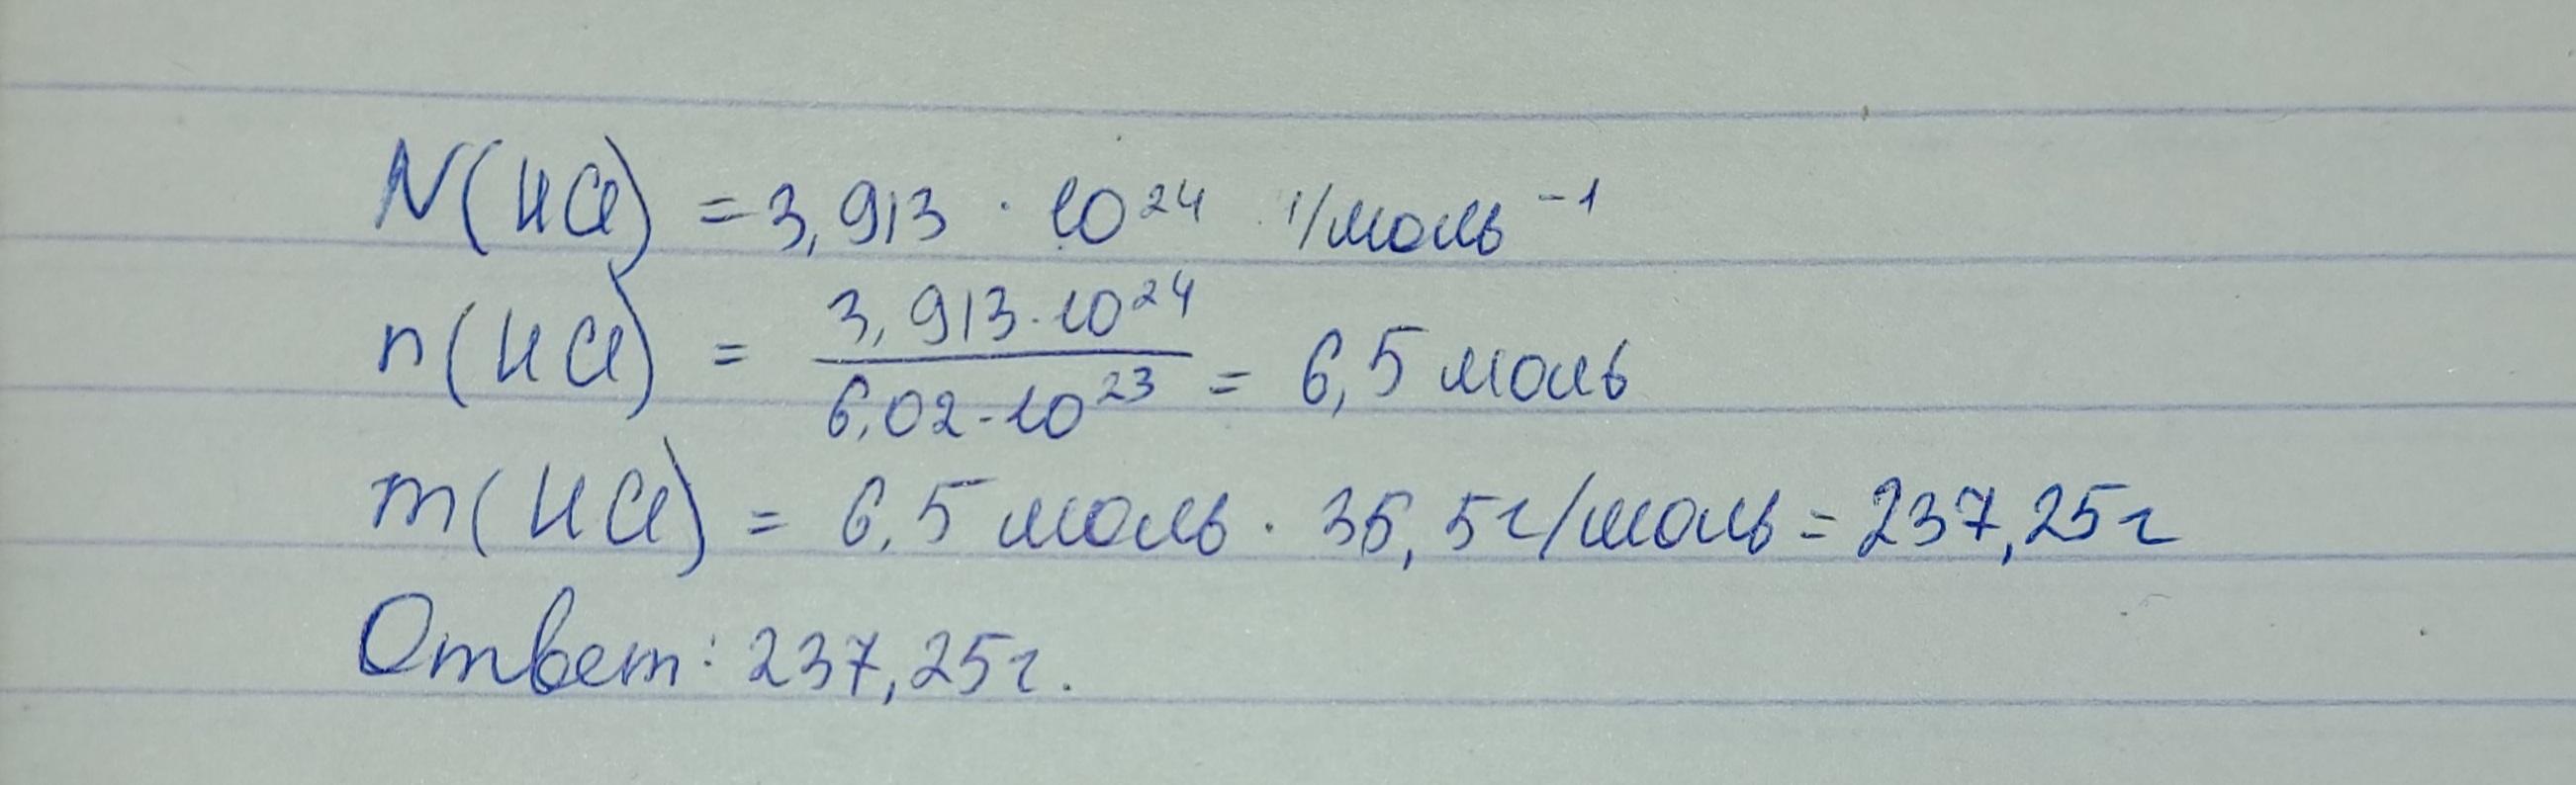 N(HCl) = 3,913 · 10²⁴ 1/моль⁻¹
n(HCl) = 3,913·10²⁴ / 6,02·10²³ = 6,5 моль
m(HCl) = 6,5 моль · 36,5 г/моль = 237,25 г
Ответ: 237,25 г.